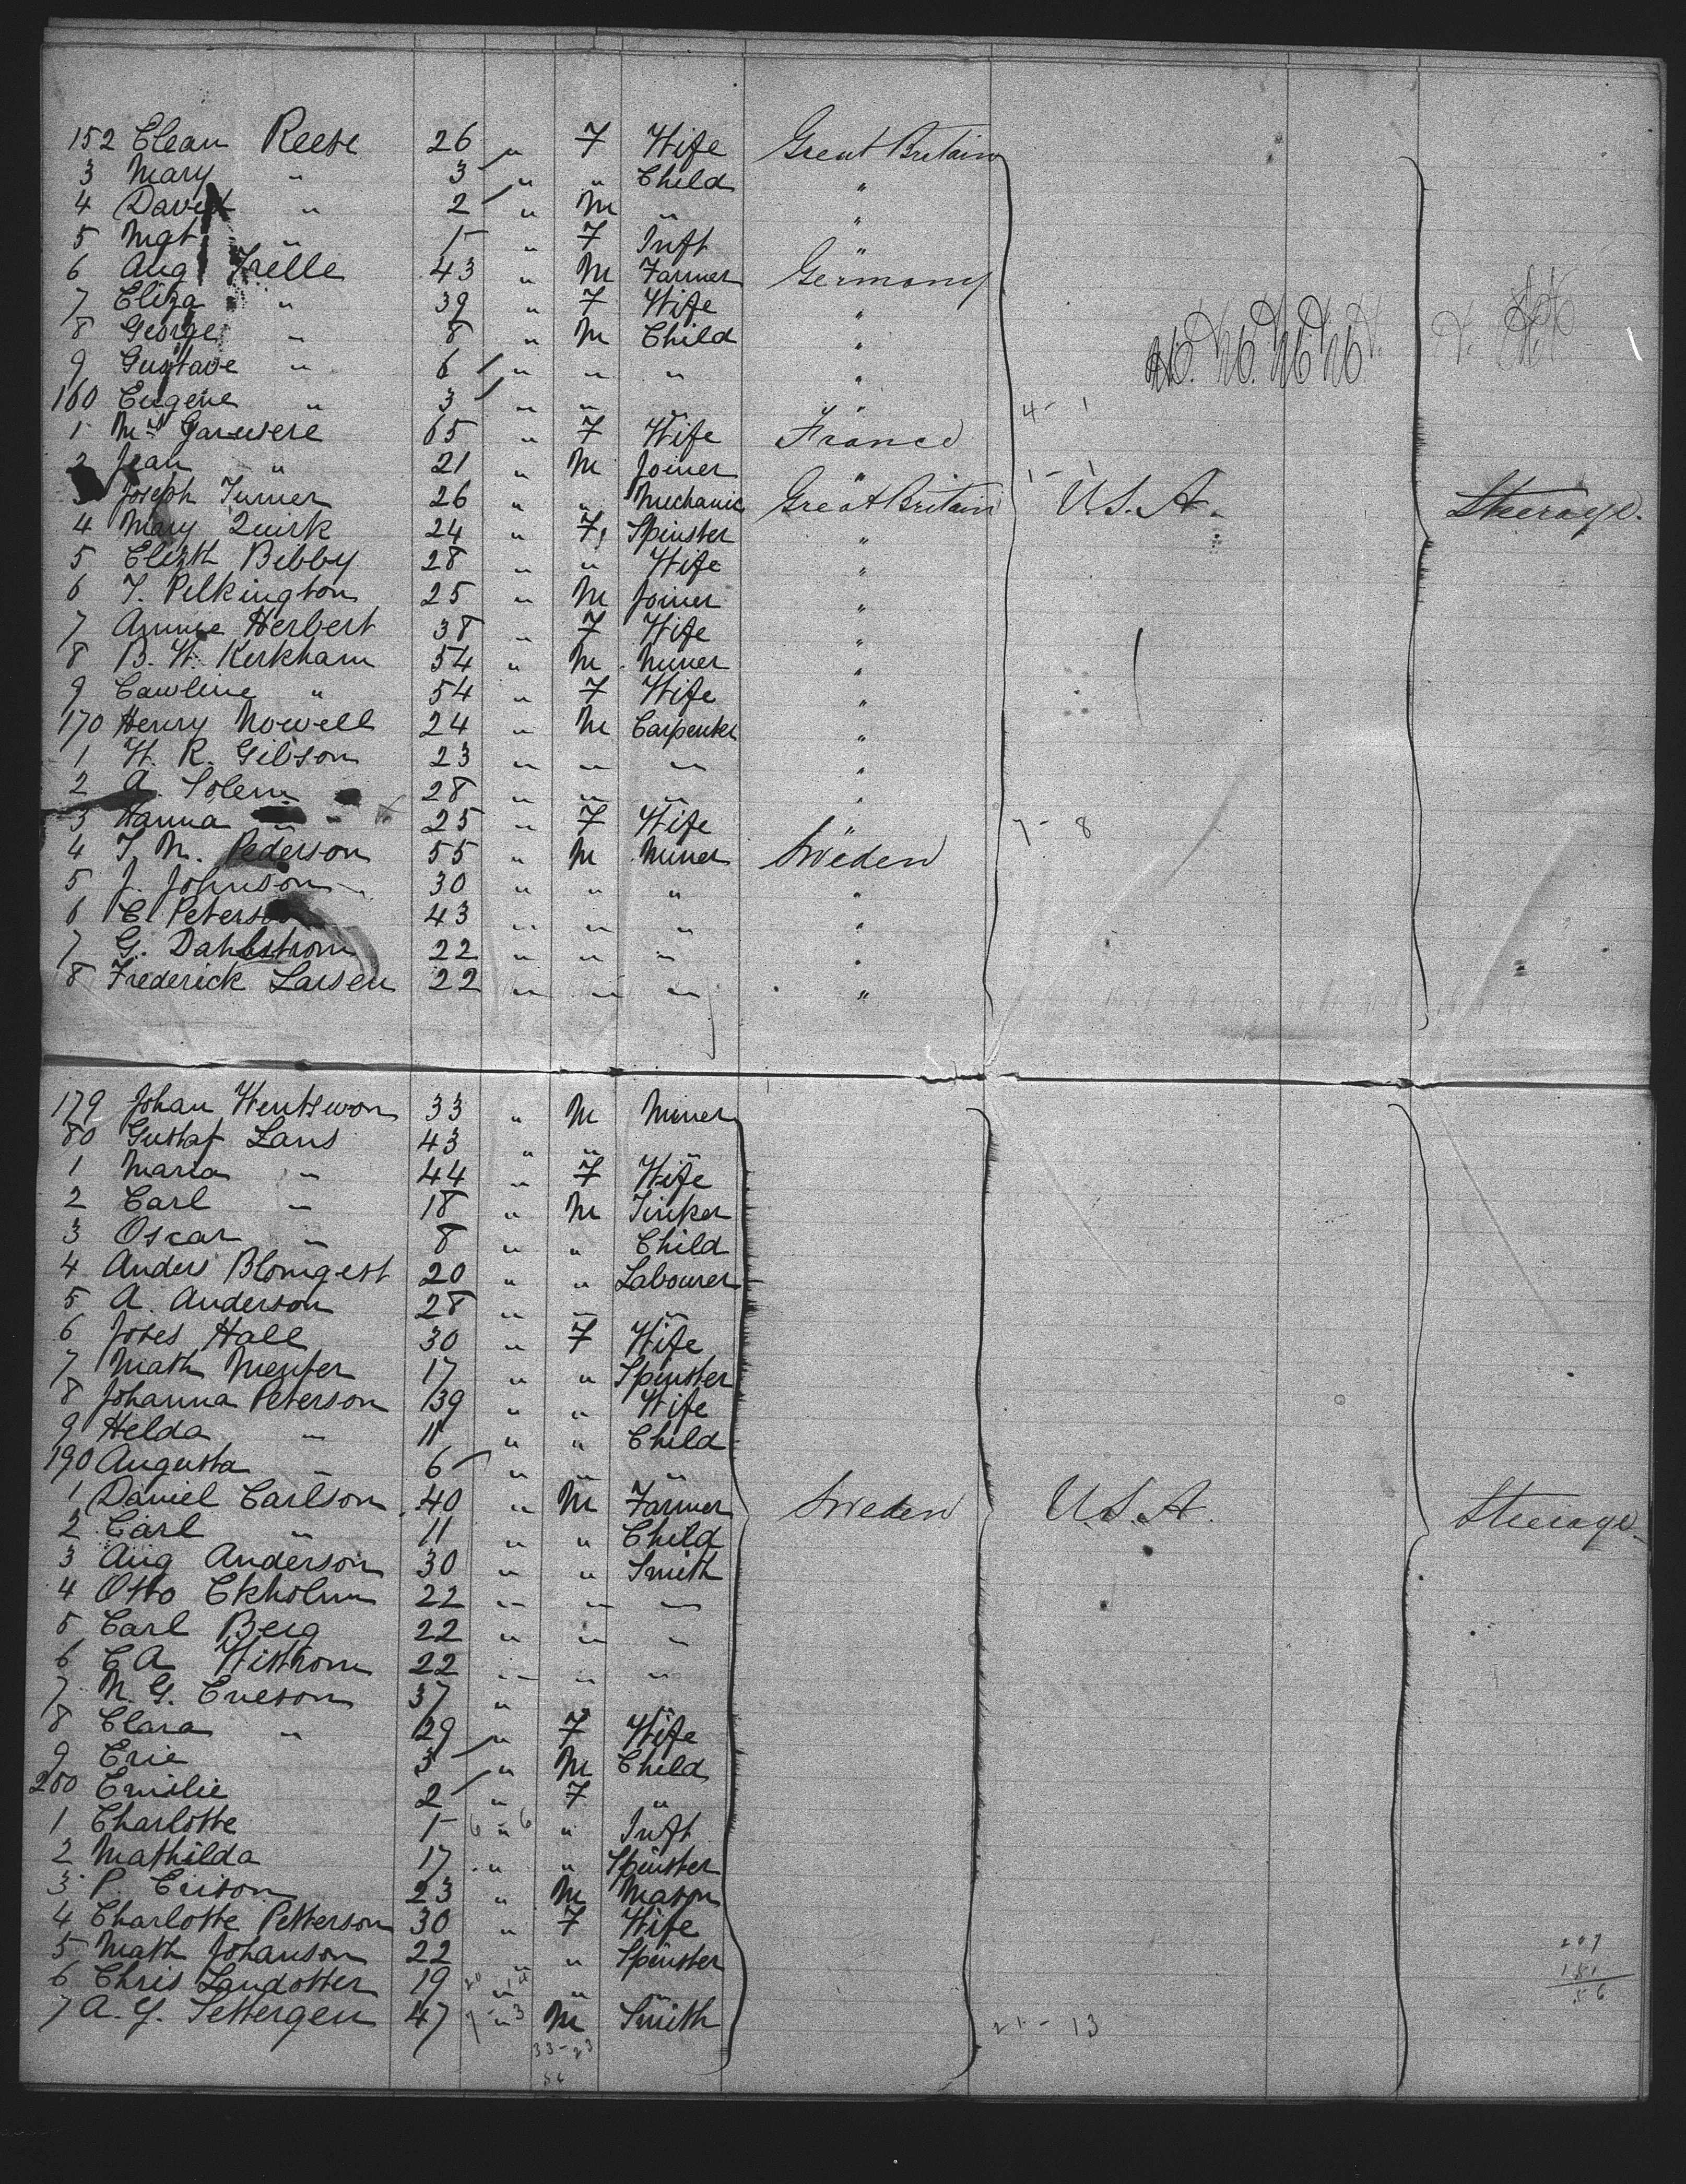 152 Elean Reese 26 " F Wife Great Britain
3 Mary " 3 " " Child "
4 David " 2 " M " "
5 Mgt " 1 " F Inft "
6 Aug Trelle 43 " M Farmer Germany
7 Eliza " 39 " F Wife "
8 George " 8 " M Child "
9 Gustave " 6 " " " "
160 Eugene " 3 " " " " 4 - 1
1 Mrs 65 " F Wife France
2 Jean " 21 " M Joiner " 1 - 1
3 Joseph Turner 26 " " Mechanic Great Britain U.S.A. Steerage.
4 Mary Quirk 24 " F Spinster "
5 Elizth Bibby 28 " " Wife "
6 T. Pilkington 25 " M Joiner "
7 Annie Herbert 38 " F Wife "
8 B. W. Kerkham 54 " M Miner "
9 Cawline " 54 " F Wife "
170 Henry Nowell 24 " M Carpenter "
1 W. R. Gibson 23 " " " "
2 A. Solem 28 " " " "
3 Hanna " 25 " F Wife " 7 - 8
4 T. M. Pederson 55 " M Miner Sweden
5 J. Johnson 30 " " " "
6 C. Peterson 43 " " " "
7 G. Dahlstrom 22 " " " "
8 Frederick Larsen 22 " " " "
179 Johan Wentswon 33 " M Miner
80 Gustaf Lans 43 " " "
1 Maria " 44 " F Wife
2 Carl " 18 " M Tinker
3 Oscar " 8 " " Child
4 Anders Blomgest 20 " " Labourer
5 A. Anderson 28 " " "
6 Joses Hall 30 " F Wife
7 Math 17 " " Spinster
8 Johanna Peterson 39 " " Wife
9 Helda " 11 " " Child
190 Augusta " 6 " " "
1 Daniel Carlson 40 " M Farmer Sweden U.S.A. Steerage
2 Carl " 11 " " Child
3 Aug Anderson 30 " " Smith
4 Otto Ekholm 22 " " "
5 Carl Berg 22 " " "
6 C A Wistrom 22 " " "
7 N. G. Eveson 37 " " "
8 Clara " 29 " F Wife
9 Erie 3 " M Child
200 Emilie 2 " F "
1 Charlotte 1 6 " 6 " Inft
2 Mathilda 17 " " Spinster
3 P. Erison 23 " M Mason
4 Charlotte Petterson 30 " F Wife
5 Math Johanson 22 " " Spinster 207
6 Chris Landotter 19 " " " 151
7 A. G. Settergen 47 7 " 3 M Smith 21 - 13 56
33 - 23
56